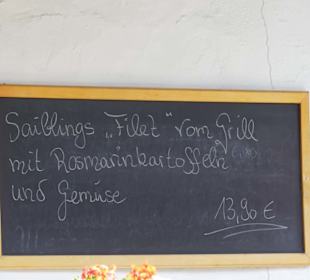 Saiblings „Filet“ vom Grill
mit Rosmarinkartoffeln
und Gemüse
13,90 €